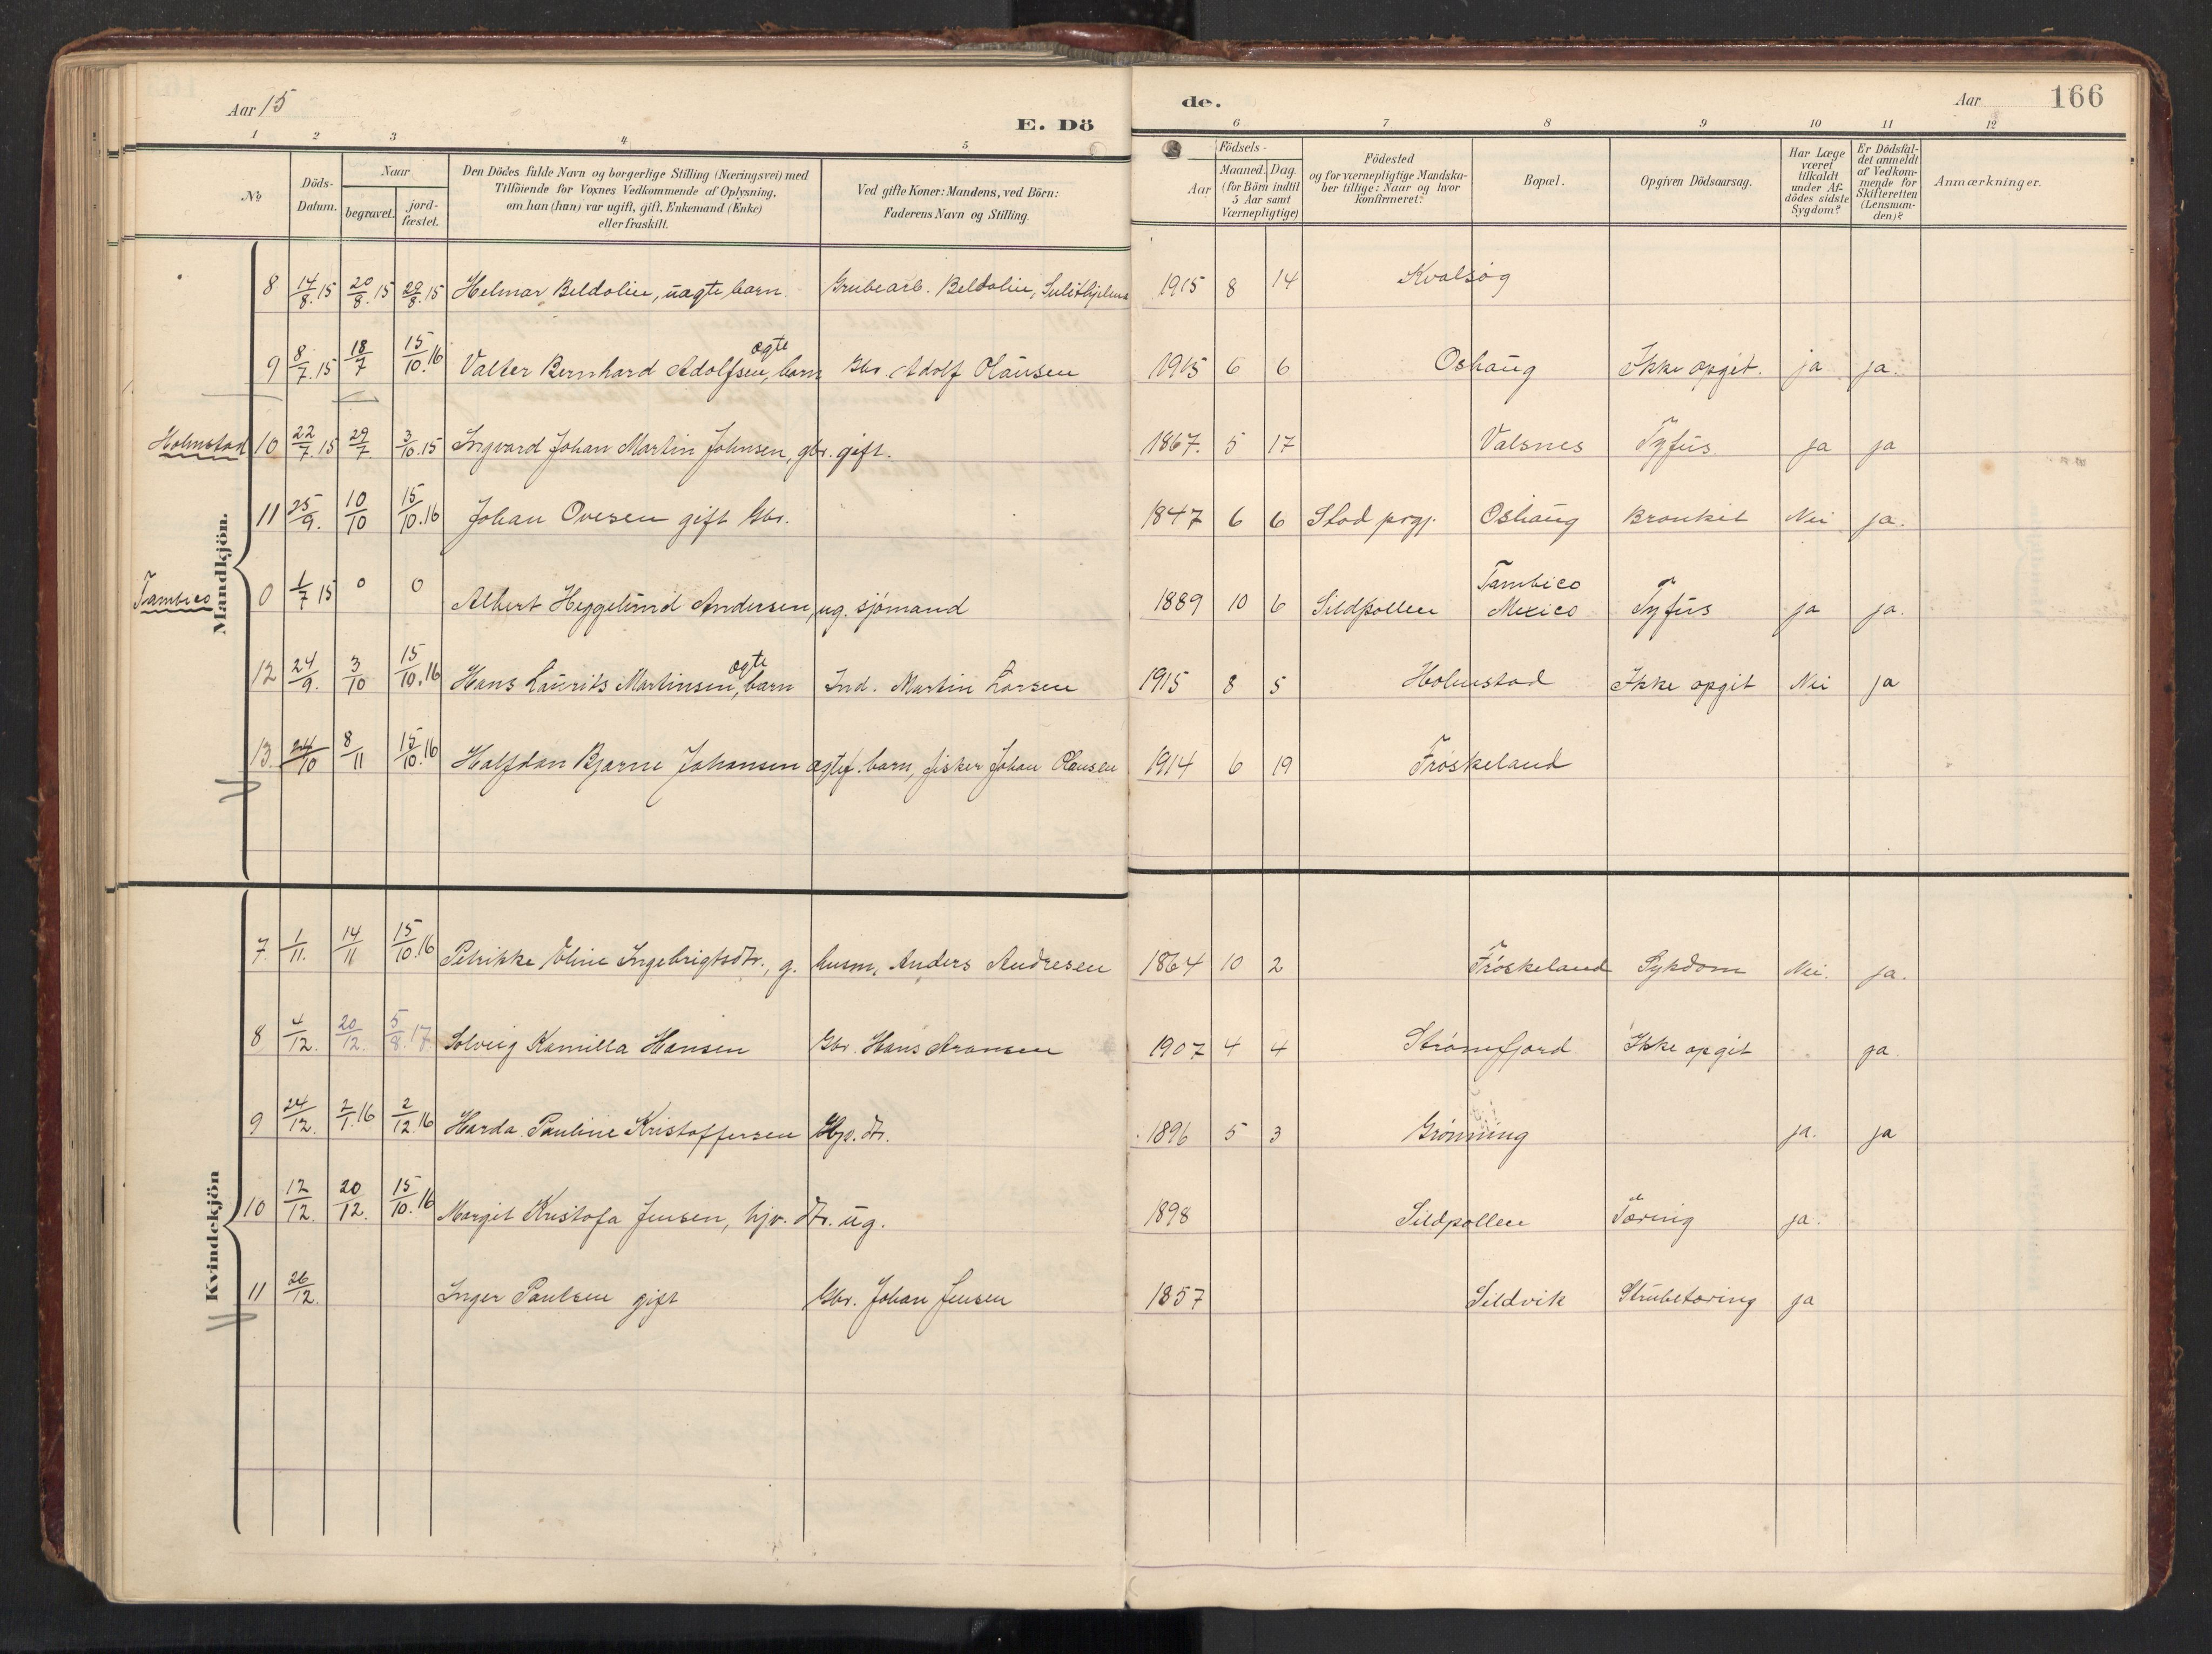 Aar 15
E. Dö
de.
Aar
166
1 2 3 4 5 6 7 8 9 10 11 12
No
Döds-Datum.
Naar
begravet.
jord-fæstet.
Den Dödes fulde Navn og borgerlige Stilling (Næringsvei) med
Tilföiende for Voxnes Vedkommende af Oplysning,
om han (hun) var ugift, gift, Enkemand (Enke)
eller fraskilt.
Ved gifte Koner: Mandens, ved Börn:
Faderens Navn og Stilling.
Födsels-
Aar
Maaned. Dag.
(for Börn indtil
5 Aar samt
Værnepligtige)
Födested
og for værnepligtige Mandska-
ber tillige: Naar og hvor
konfirmeret?
Bopæl.
Opgiven Dödsaarsag.
Har Læge
været
tilkaldt
under Af-
dödes sidste
Sygdom?
Er Dödsfal-
det anmeldt
af Vedkom-
mende for
Skifteretten
(Lensman-
den)?
Anmærkninger.
Mandkjön.
8 14/8.15 20/8.15 20/8.15 Helmar Beldolie, uægte barn. Grubearb. Beldolie, Sulithjelma 1915 8 14 Kvalsøg
9 8/7.15 18/7 15/10.16 Valter Bernhard Adolfsen, ægte barn Gbr. Adolf Olausen 1915 6 6 Oshaug Ikke opgit. ja ja.
Holmstad 10 22/7.15 29/7 3/10.15 Ingvard Johan Martin Johnsen, gbr. gift. 1867. 5 17 Valsnes Tyfus ja ja
11 25/9. 10/10 15/10.16 Johan Ovesen gift Gbr. 1847 6 6 Stod prgj. Oshaug Bronkit Nei ja.
Tambico 0 1/7 15 0 0 Albert Heggelund Andersen, ug. sjømand 1889 10 6 Sildpollen Tambico Mexico Tyfus ja ja.
12 24/9. 3/10 15/10.16 Hans Laurits Martinsen, ægte barn Ind. Martin Larsen 1915 8 5 Holmstad Ikke opgit Nei ja
13. 24/10 8/11 15/10.16 Halfdan Bjarne Johansen ægtef. barn, fisker Johan Olausen 1914 6 19 Frøskeland
Kvindekjön
7. 1/11. 14/11 15/10.16 Petrikke Oline Ingebrigtsdtr., g. husm. Anders Andresen 1864 10 2 Frøskeland Sykdom Nei. ja.
8 4/12. 20/12. 5/8.17 Solveig Kamilla Hansen Gbr. Hans Aronsen 1907 4 4 Strømfjord Ikke opgit ja.
9 24/12. 2/1.16 2/12.16 Harda Pauline Kristoffersen Hjv. dtr. 1896 5 3 Grønning ja. ja
10 12/12. 20/12. 15/10.16 Margit Kristofa Jensen, hjv. dtr. ug. 1898 Sildpollen Tæring ja.
11 26/12. Inger Paulsen gift Gbr. Johan Jensen 1857 Sildvik Strubetæring ja